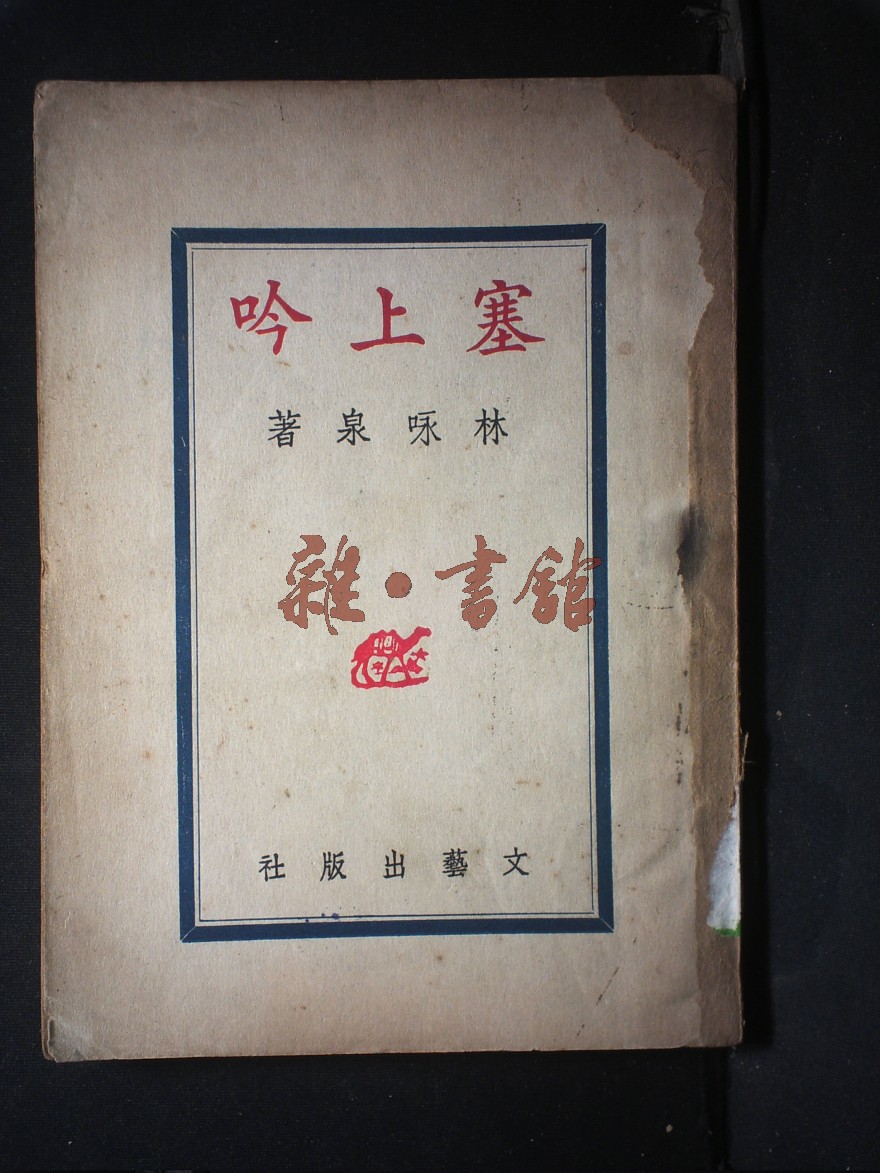 塞上吟
林咏泉著
雜·書館
文藝出版社